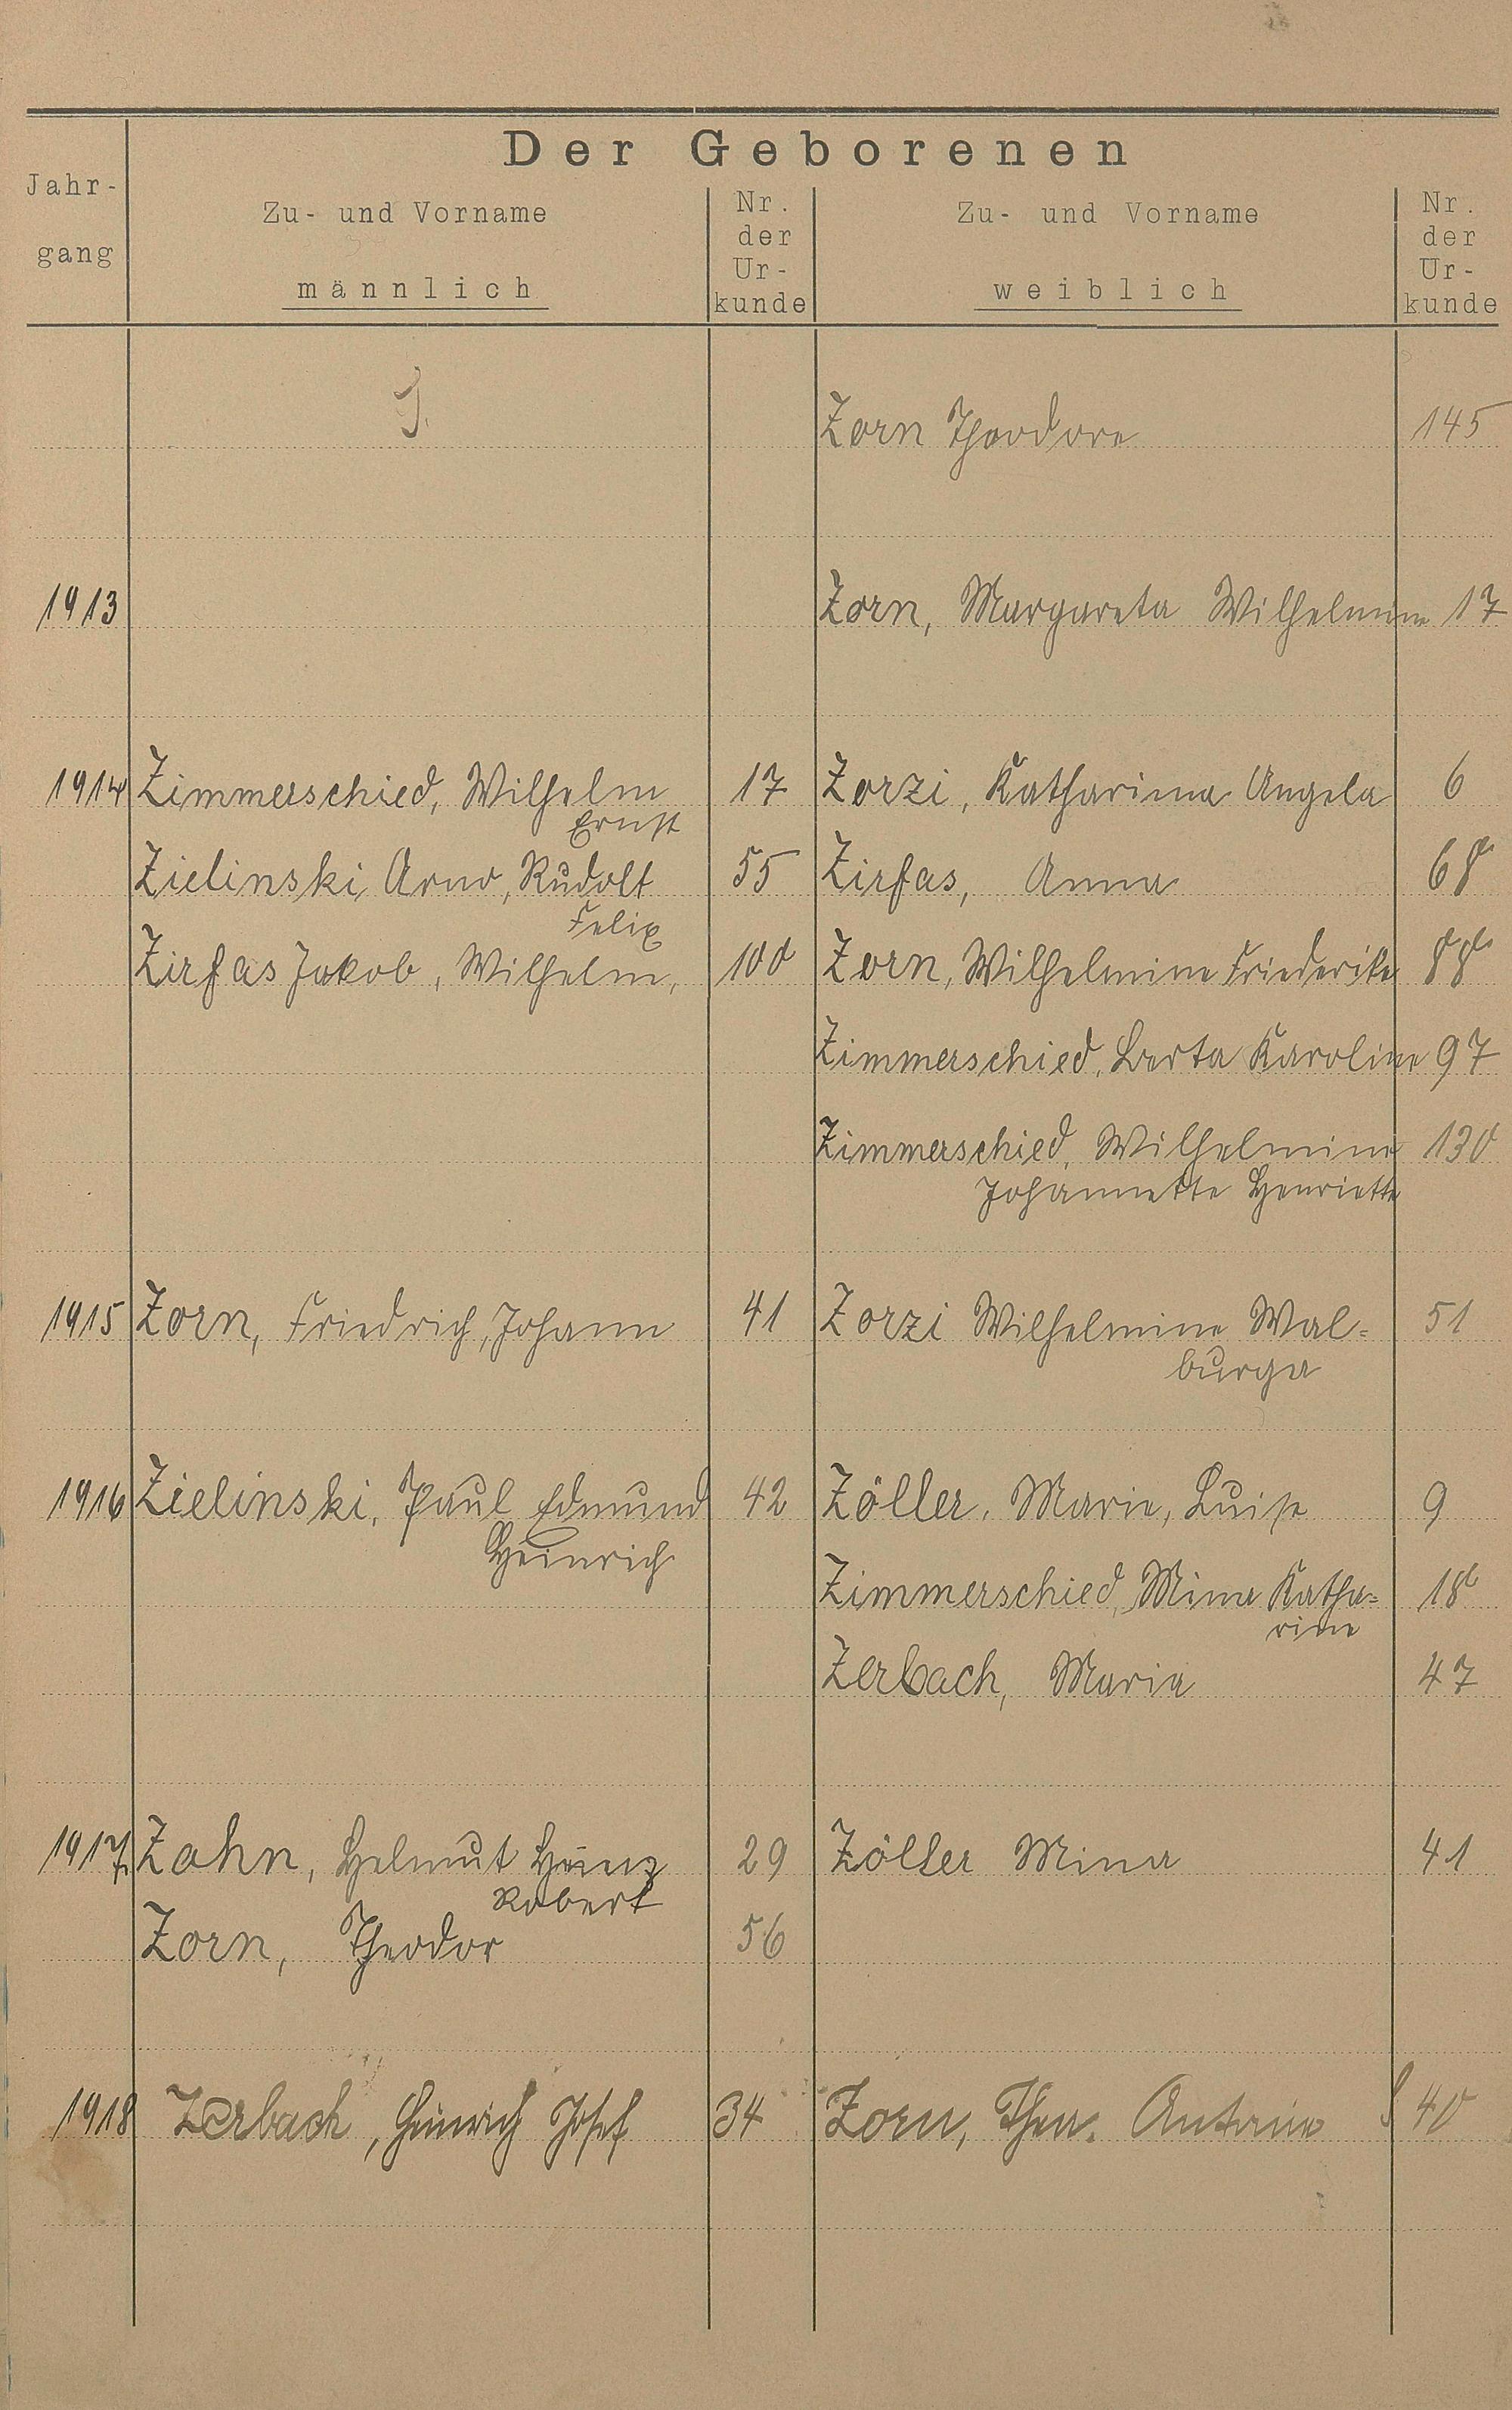 Der Geborenen
Jahr-
gang
Zu- und Vorname
männlich
Nr.
der
Ur-
kunde
Zu- und Vorname
weiblich
Nr.
der
Ur-
kunde
Zorn Theodore 145
1913 Zorn, Margareta Wilhelmine 17
1914 Zimmerschied, Wilhelm 17 Zorzi, Katharina Angela 6
Ernst
Zielinski Arno, Rudolf 55 Zirfas, Anna 68
Felix
Zirfas Jakob, Wilhelm, 100 Zorn, Wilhelmine Friederike 88
Zimmerschied, Berta Karoline 97
Zimmerschied, Wilhelmine 130
Johannette Henriette
1915 Zorn, Friedrich, Johann 41 Zorzi Wilhelmine Wal= 51
burga
1916 Zielinski, Paul Edmund 42 Zöller, Marie, Luise 9
Heinrich
Zimmerschied, Mina Katha= 18
rine
Zerbach, Maria 47
1917 Zahn, Helmut Heinz 29 Zöller Mina 41
Robert
Zorn, Theodor 56
1918 Zerbach, Heinrich Josef 34 Zorn, Antonie 40